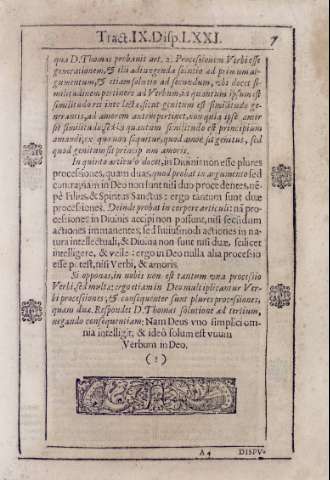 Tract. IX. Disp. LXXI. 7
qua D. Thomas probauit art. 2. Processionem Verbi esse
generationem, & illa adiungenda sicutio ad primum ar-
gumentum, & etiam solutio ad secundum, vbi docet si-
militudinem pertinere ad Verbum, in quantum ipsum est
similitudo rei intellectæ, sicut genitum est similitudo ge-
nerantis, ad amorem autem pertinet, non quia ipse amor
sit similitudo, sed in quantum similitudo est principium
amandi, ex quo non sequitur, quod amor sit genitus, sed
quod genitum sit principium amoris.
In quinto articulo docet, in Diuinis non esse plures
processiones, quam duas, quod probat in argumento sed
contra, nam in Deo non sunt nisi duo procedentes, nē-
pè Filius, & Spiritus Sanctus: ergo tantum sunt duæ
processiones. Deinde probat in corpore articuli: nã pro-
cessiones in Diuinis accipi non possunt, nisi secũdum
actiones immanentes; sed huiusmodi actiones in na-
tura intellectuali, & Diuina non sunt nisi duæ, scilicet
intelligere, & velle: ergo in Deo nulla alia processio
esse potest, nisi Verbi, & amoris.
Si opponas, in nobis non est tantum vna processio
Verbi, sed multæ: ergo etiam in Deo multiplicantur Ver-
bi processiones, & consequenter sunt plures processiones,
quam duæ. Respondet D. Thomas solutione ad tertium,
negando consequentiam: Nam Deus vno simplici om-
nia intelligit, & ideò solum est vnum
Verbum in Deo.
(?)
A 4 DISPV-